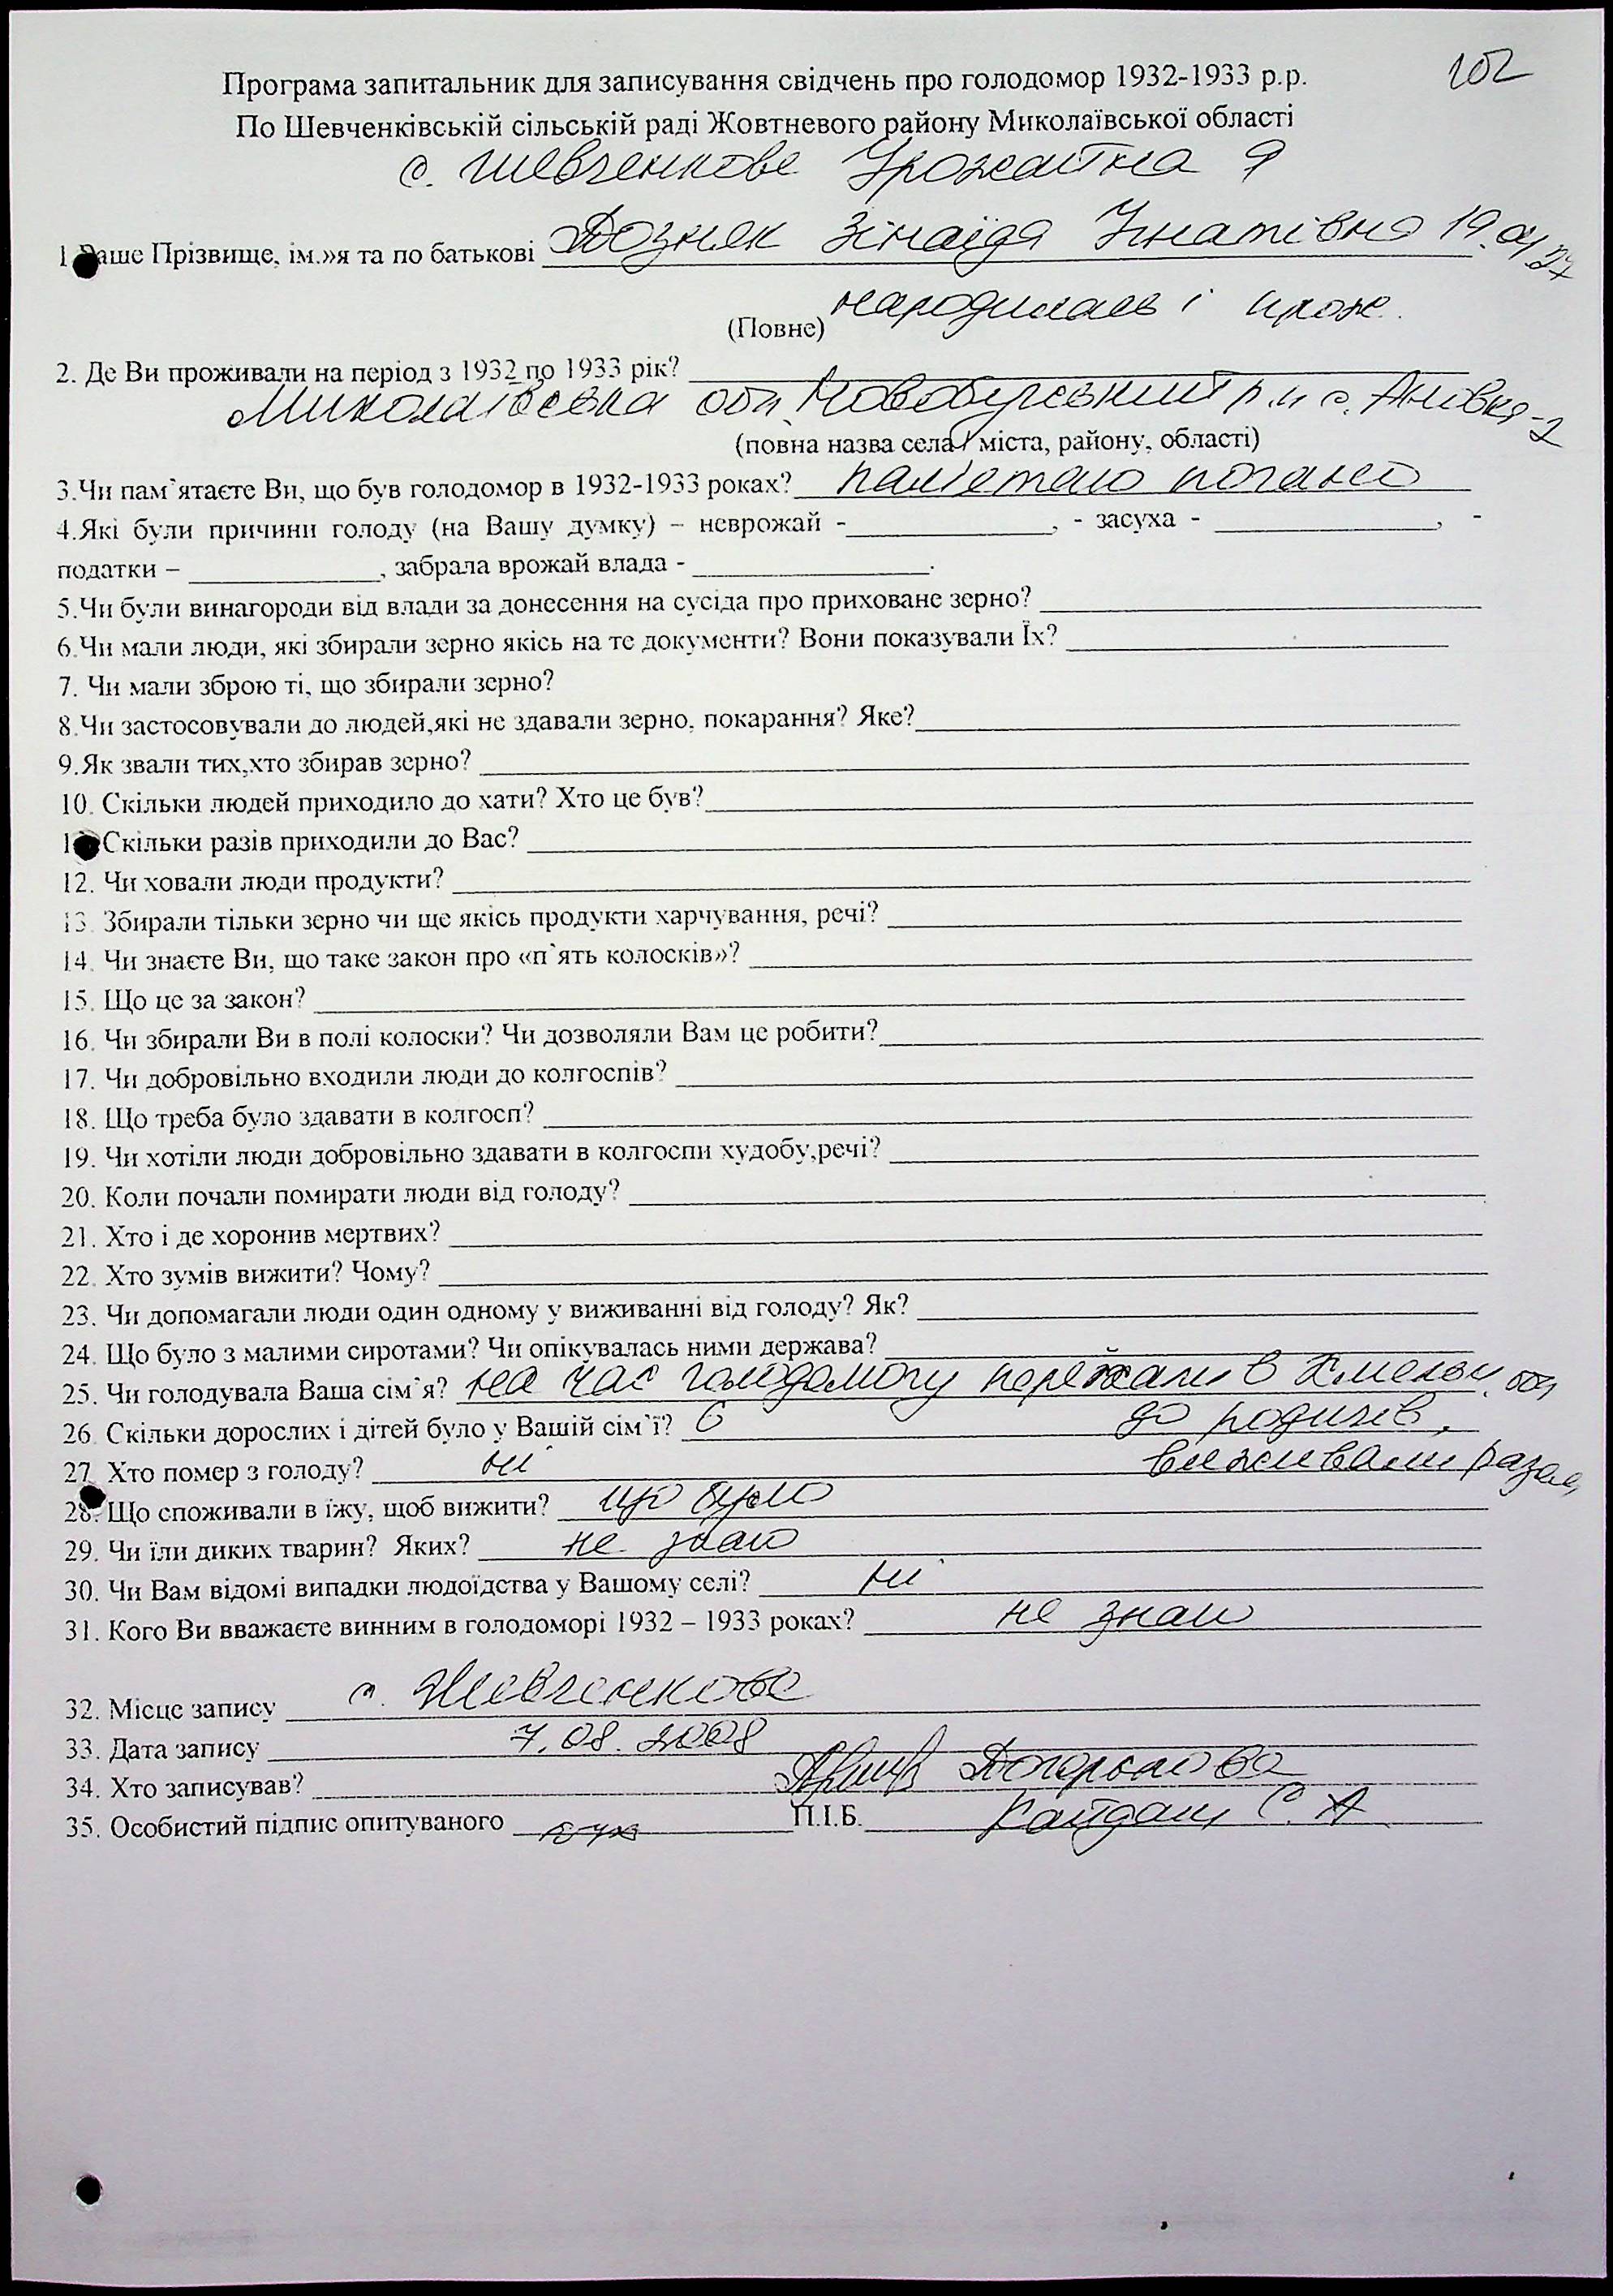 102
Програма запитальник для записування свідчень про голодомор 1932-1933 р.р.
По Шевченківській сільській раді Жовтневого району Миколаївської області
с. Шевченкове Урожайна 9
1 Ваше Прізвище, ім.»я та по батькові Дозняк Зінаїда Гнатівна 19.04.27
народилась і прож.
(Повне)
2. Де Ви проживали на період з 1932 по 1933 рік?
Миколаївська обл Новобузський р.н с. Анівка-2
(повна назва села / міста, району, області)
3.Чи пам`ятаєте Ви, що був голодомор в 1932-1933 роках? пам'етаю погано
4.Які були причини голоду (на Вашу думку) – неврожай - , - засуха - , -
податки – , забрала врожай влада - .
5.Чи були винагороди від влади за донесення на сусіда про приховане зерно?
6.Чи мали люди, які збирали зерно якісь на те документи? Вони показували Їх?
7. Чи мали зброю ті, що збирали зерно?
8.Чи застосовували до людей,які не здавали зерно, покарання? Яке?
9.Як звали тих,хто збирав зерно?
10. Скільки людей приходило до хати? Хто це був?
1 Скільки разів приходили до Вас?
12. Чи ховали люди продукти?
13. Збирали тільки зерно чи ще якісь продукти харчування, речі?
14. Чи знаєте Ви, що таке закон про «п`ять колосків»?
15. Що це за закон?
16. Чи збирали Ви в полі колоски? Чи дозволяли Вам це робити?
17. Чи добровільно входили люди до колгоспів?
18. Що треба було здавати в колгосп?
19. Чи хотіли люди добровільно здавати в колгоспи худобу,речі?
20. Коли почали помирати люди від голоду?
21. Хто і де хоронив мертвих?
22. Хто зумів вижити? Чому?
23. Чи допомагали люди один одному у виживанні від голоду? Як?
24. Що було з малими сиротами? Чи опікувалась ними держава?
25. Чи голодувала Ваша сім`я? на час голодомору переїхали в Хмельн. обл
26. Скільки дорослих і дітей було у Вашій сім`ї? 6 до родичів,
27. Хто помер з голоду? ні виживали разом
28. Що споживали в їжу, щоб вижити? що було
29. Чи їли диких тварин? Яких? не знаю
30. Чи Вам відомі випадки людоїдства у Вашому селі? ні
31. Кого Ви вважаєте винним в голодоморі 1932 – 1933 роках? не знаю
32. Місце запису с. Шевченкове
33. Дата запису 7.08.2008
34. Хто записував?
35. Особистий підпис опитуваного П.І.Б. Кайдаш С. А